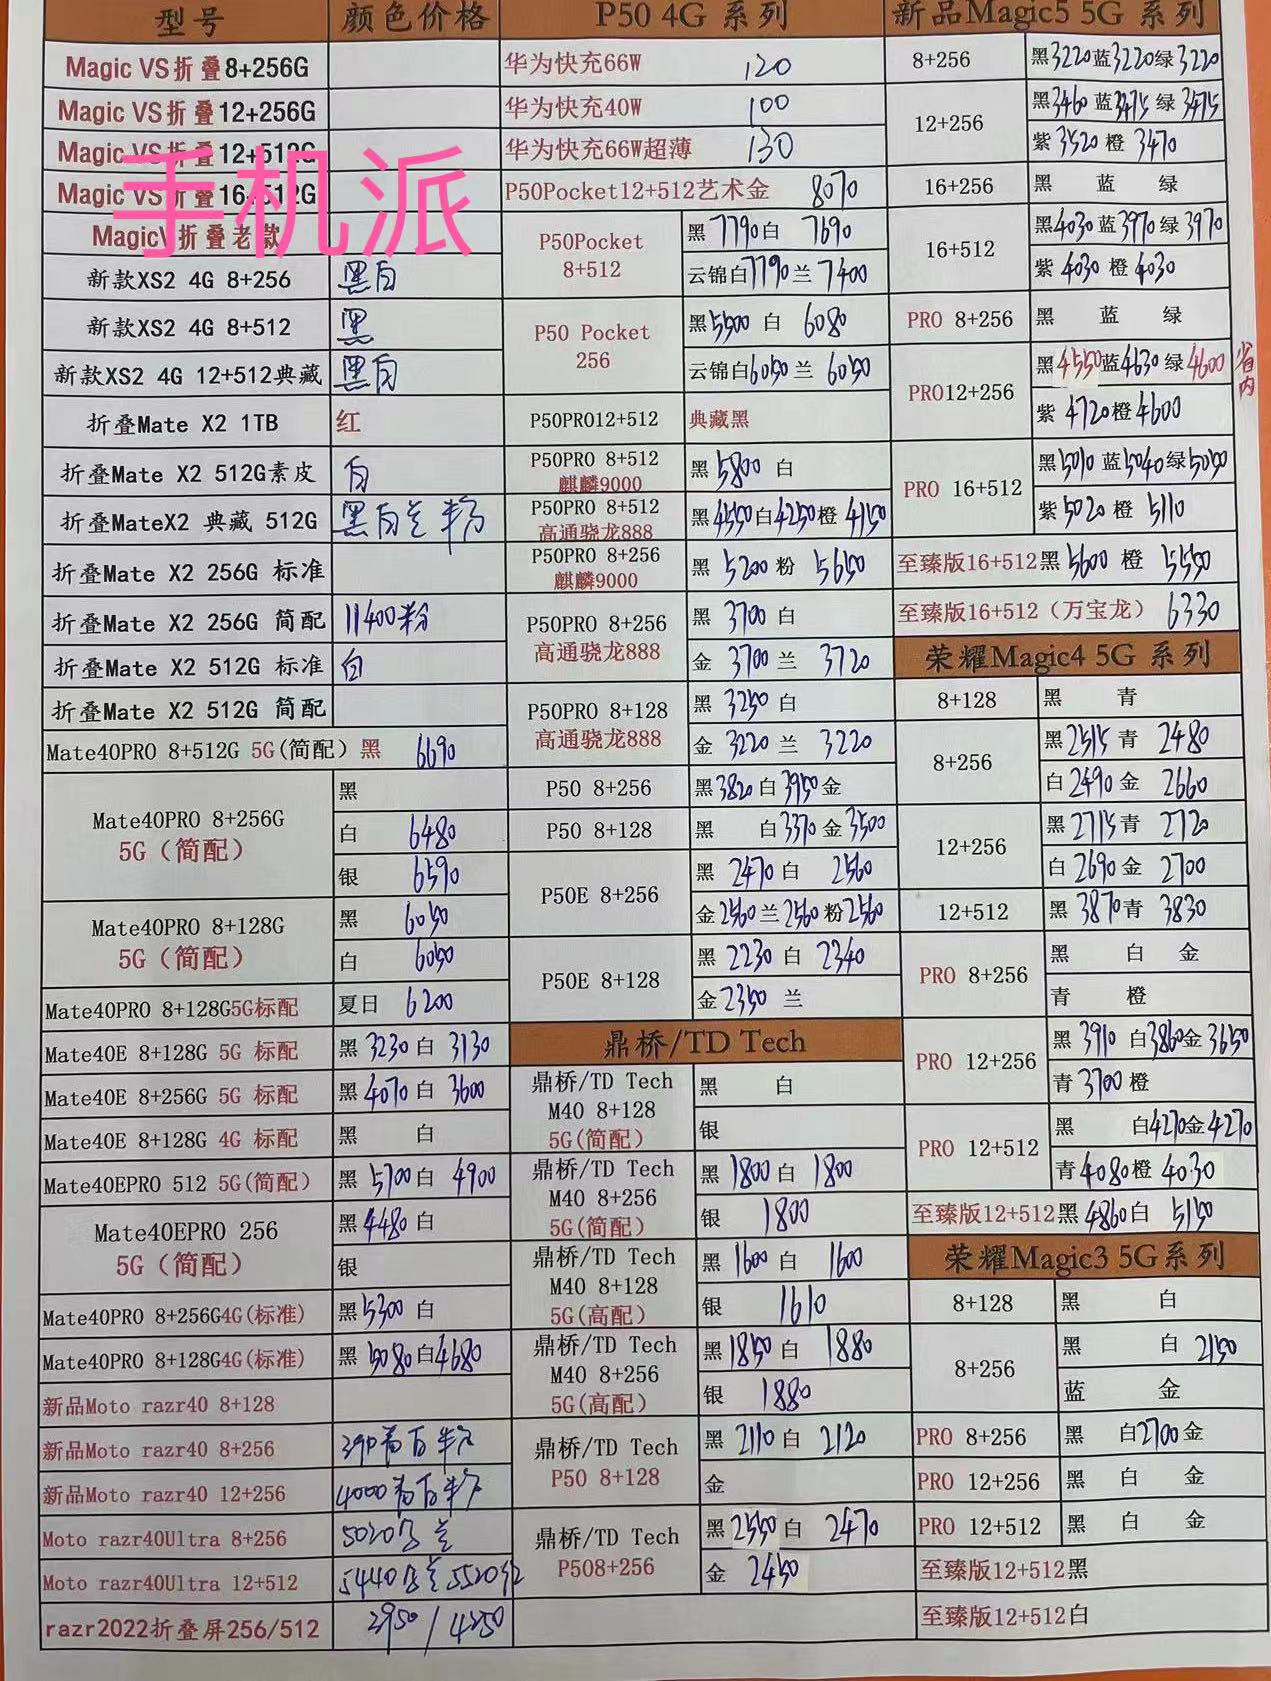 型号 颜色价格
Magic VS折叠8+256G
Magic VS折叠12+256G
Magic VS折叠12+512G
Magic VS折叠16+512G
手机派
MagicV折叠老款
新款XS2 4G 8+256 黑白
新款XS2 4G 8+512 黑
新款XS2 4G 12+512典藏 黑白
折叠Mate X2 1TB 红
折叠Mate X2 512G素皮 白
折叠MateX2 典藏 512G 黑白兰粉
折叠Mate X2 256G 标准
折叠Mate X2 256G 简配 11400粉
折叠Mate X2 512G 标准 白
折叠Mate X2 512G 简配
Mate40PRO 8+512G 5G(简配) 黑 6690
Mate40PRO 8+256G
5G（简配）
黑
白 6480
银 6590
Mate40PRO 8+128G
5G（简配）
黑 6050
白 6050
Mate40PRO 8+128G5G标配 夏日 6200
Mate40E 8+128G 5G 标配 黑3230白 3130
Mate40E 8+256G 5G 标配 黑4070白 3600
Mate40E 8+128G 4G 标配 黑 白
Mate40EPRO 512 5G(简配) 黑 5700白 4900
Mate40EPRO 256
5G（简配）
黑4480白
银
Mate40PRO 8+256G4G(标准) 黑5300 白
Mate40PRO 8+128G4G(标准) 黑 5080白4680
新品Moto razr40 8+128
新品Moto razr40 8+256
新品Moto razr40 12+256 4000
Moto razr40Ultra 8+256 5020
Moto razr40Ultra 12+512 5440
razr2022折叠屏256/512 2950/4250
P50 4G 系列
华为快充66W 120
华为快充40W 100
华为快充66W超薄 130
P50Pocket12+512艺术金 8070
P50Pocket
8+512
黑 7790白 7690
云锦白7790兰 7400
P50 Pocket
256
黑5500 白 6080
云锦白6050兰 6050
P50PRO12+512 典藏黑
P50PRO 8+512
麒麟9000
黑 5800 白
P50PRO 8+512
高通骁龙888
黑4550白4250橙 4150
P50PRO 8+256
麒麟9000
黑 5200粉 5650
P50PRO 8+256
高通骁龙888
黑 3700 白
金 3700兰 3720
P50PRO 8+128
高通骁龙888
黑 3250 白
金 3220 兰 3220
P50 8+256 黑3820白3950金
P50 8+128 黑 白3370金3500
P50E 8+256
黑 2470白 2560
金2560兰2560粉2560
P50E 8+128
黑 2230 白 2340
金2350 兰
鼎桥/TD Tech
鼎桥/TD Tech
M40 8+128
5G(简配)
黑 白
银
鼎桥/TD Tech
M40 8+256
5G(简配)
黑 1800白 1800
银 1800
鼎桥/TD Tech
M40 8+128
5G(高配)
黑 1600 白 1600
银 1610
鼎桥/TD Tech
M40 8+256
5G(高配)
黑1850白 1880
银 1880
鼎桥/TD Tech
P50 8+128
黑 2110白 2120
金
鼎桥/TD Tech
P508+256
黑2550白 2470
金 2450
新品Magic5 5G 系列
8+256 黑3220蓝3220绿3220
12+256
黑3460 蓝3475 绿 3475
紫 3520 橙 3470
16+256 黑 蓝 绿
16+512
黑4030蓝3970绿3970
紫 4030 橙 4030
PRO 8+256 黑 蓝 绿
PRO12+256
黑4550蓝4630绿4600
省内
紫 4720橙4600
PRO 16+512
黑5010 蓝5040绿5050
紫5020 橙 5110
至臻版16+512黑 5600 橙 5550
至臻版16+512（万宝龙） 6330
荣耀Magic4 5G 系列
8+128 黑 青
8+256
黑2515青 2480
白2490金 2660
12+256
黑2715青 2720
白2690金 2700
12+512 黑 3870青 3830
PRO 8+256
黑 白 金
青 橙
PRO 12+256
黑 3910 白3860金3650
青3700橙
PRO 12+512
黑 白4270金4270
青4080橙 4030
至臻版12+512黑 4860白 5150
荣耀Magic3 5G系列
8+128 黑 白
8+256
黑 白 2150
蓝 金
PRO 8+256 黑 白2700金
PRO 12+256 黑 白 金
PRO 12+512 黑 白 金
至臻版12+512黑
至臻版12+512白